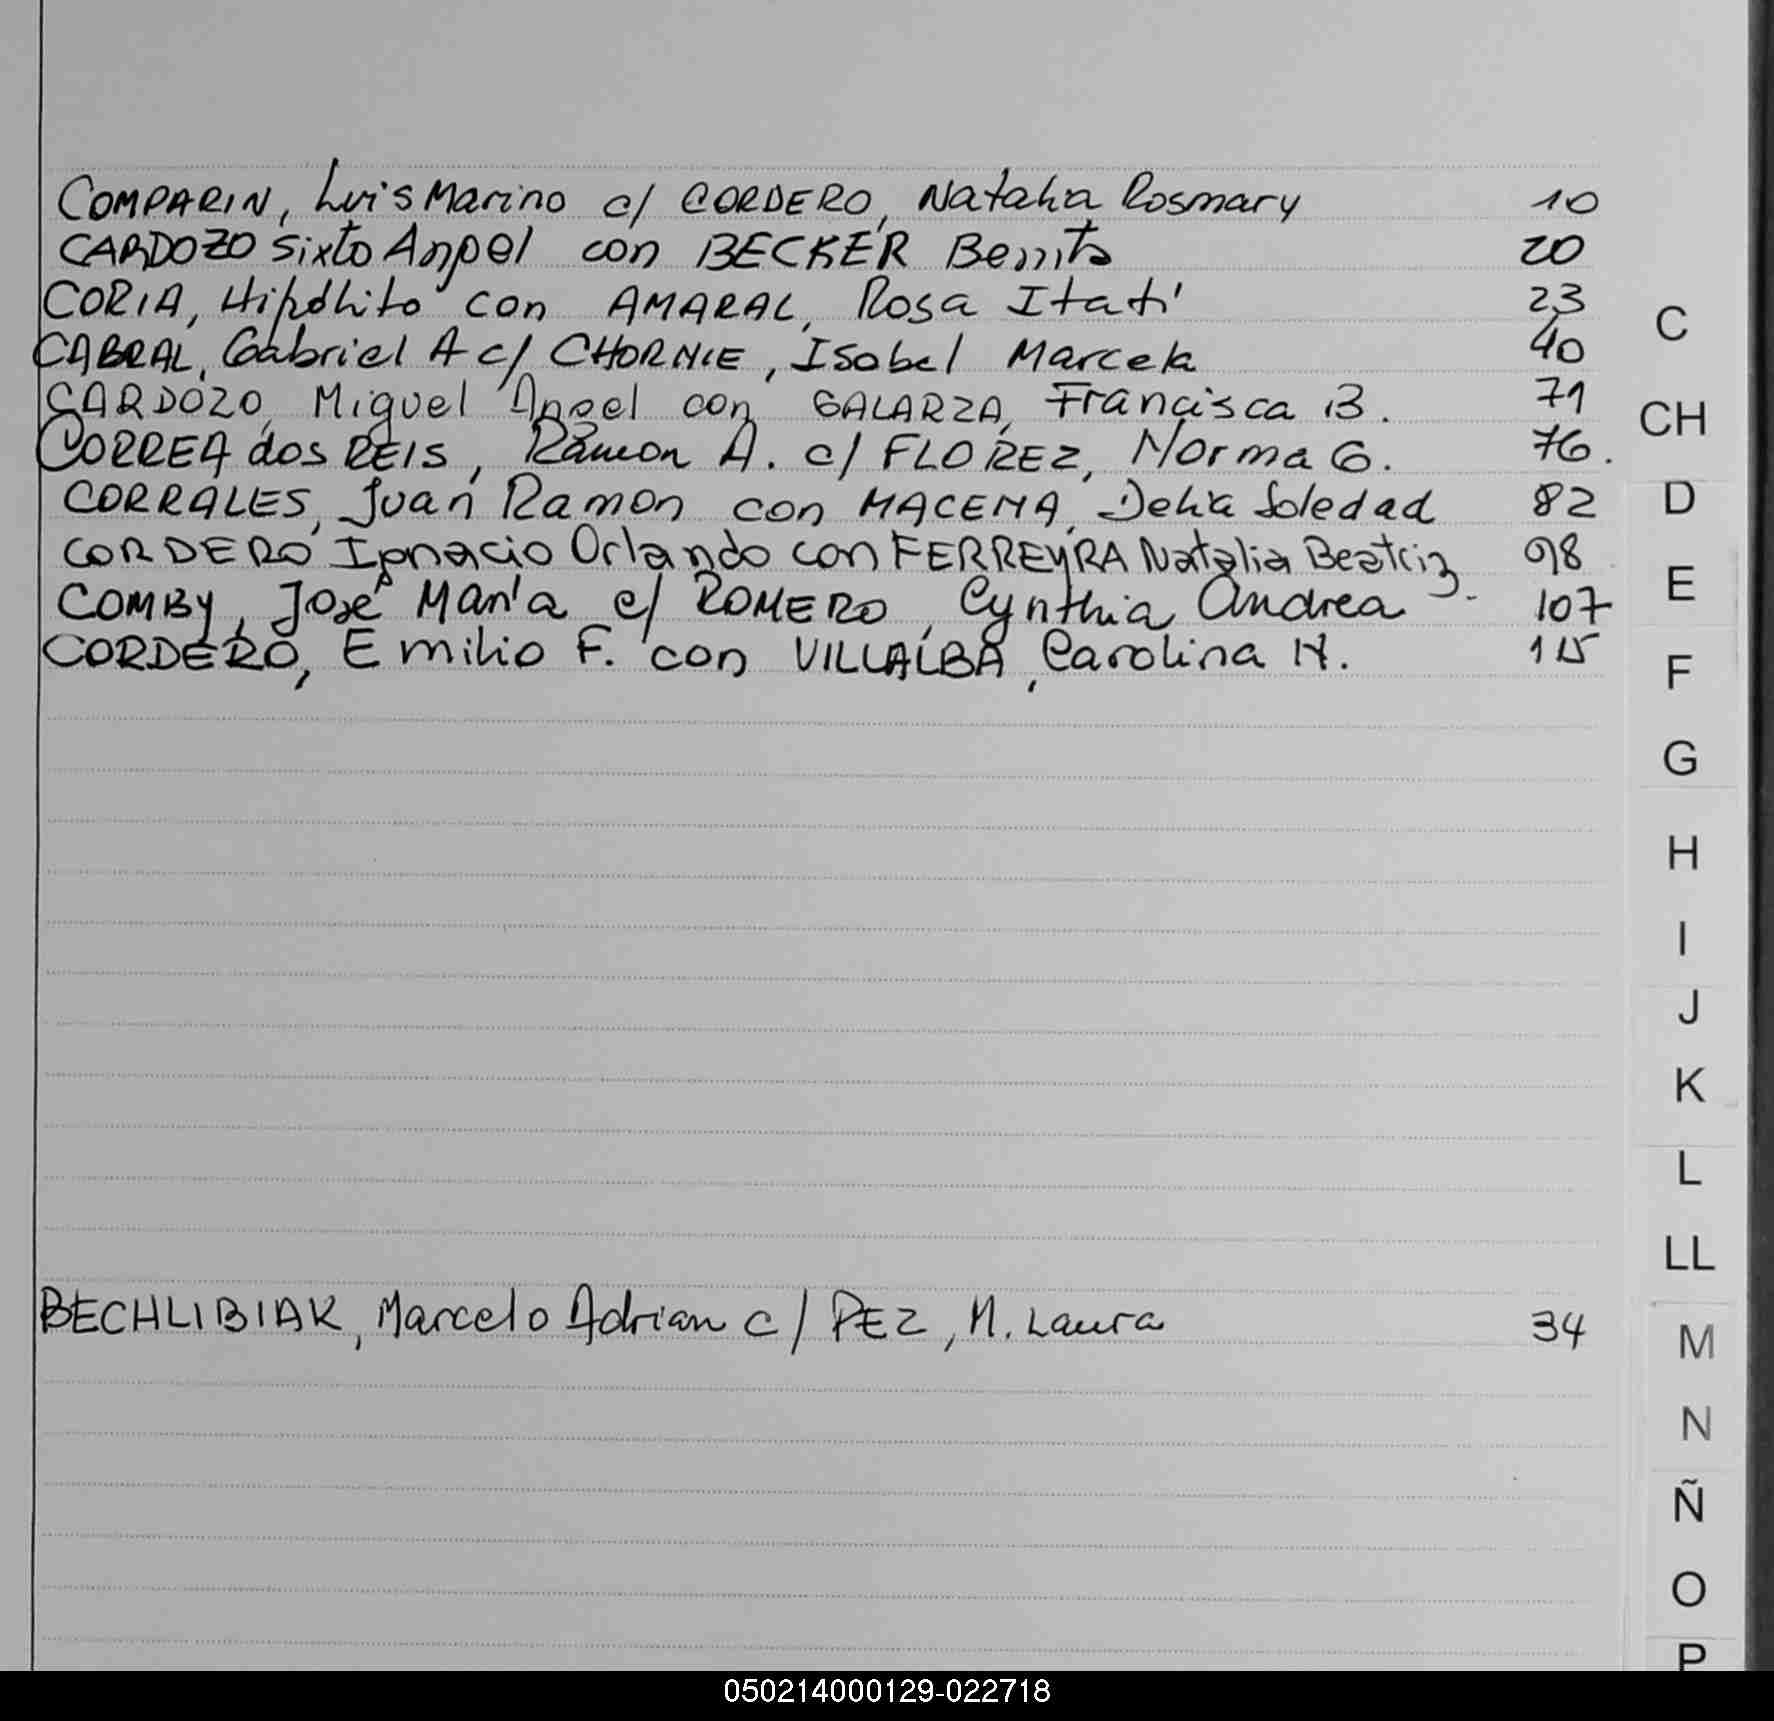 COMPARIN, Luis Marino c/ CORDERO, Natalia Rosmary 10
CARDOZO Sixto Angel con BECKER Benita 20
CORIA, Hipólito con AMARAL, Rosa Itatí 23
CABRAL, Gabriel A c/ CHORNIE, Isabel Marcela 40
CARDOZO, Miguel Angel con GALARZA, Francisca B. 71
CORREA dos REIS, Ramon A. c/ FLOREZ, Norma G. 76.
CORRALES, Juan Ramon con MACENA, Delia Soledad 82
CORDERO Ignacio Orlando con FERREYRA Natalia Beatriz 98
COMBY, José María c/ ROMERO, Cynthia Andrea 107
CORDERO, Emilio F. con VILLALBA, Carolina N. 115
BECHLIBIAK, Marcelo Adrian c/ PEZ, M. Laura 34
C
CH
D
E
F
G
H
I
J
K
L
LL
M
N
Ñ
O
P
050214000129-022718